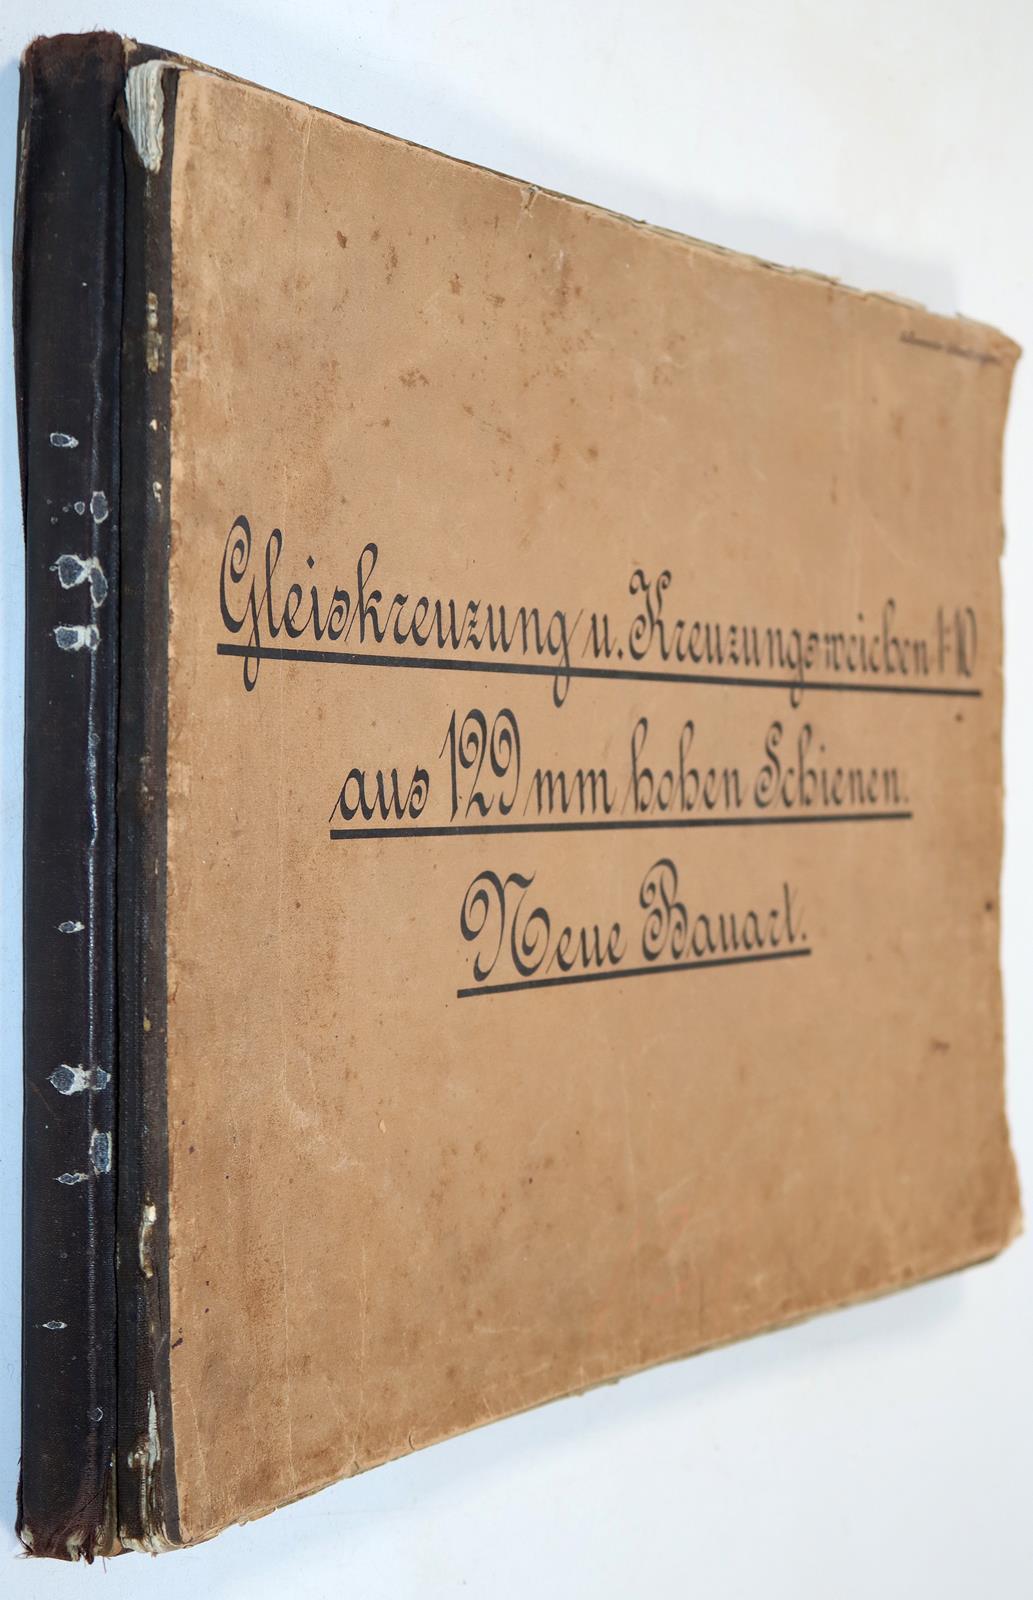 Gleiskreuzung u. Kreuzungsweichen 1:10
aus 129 mm hohen Schienen.
Neue Bauart.